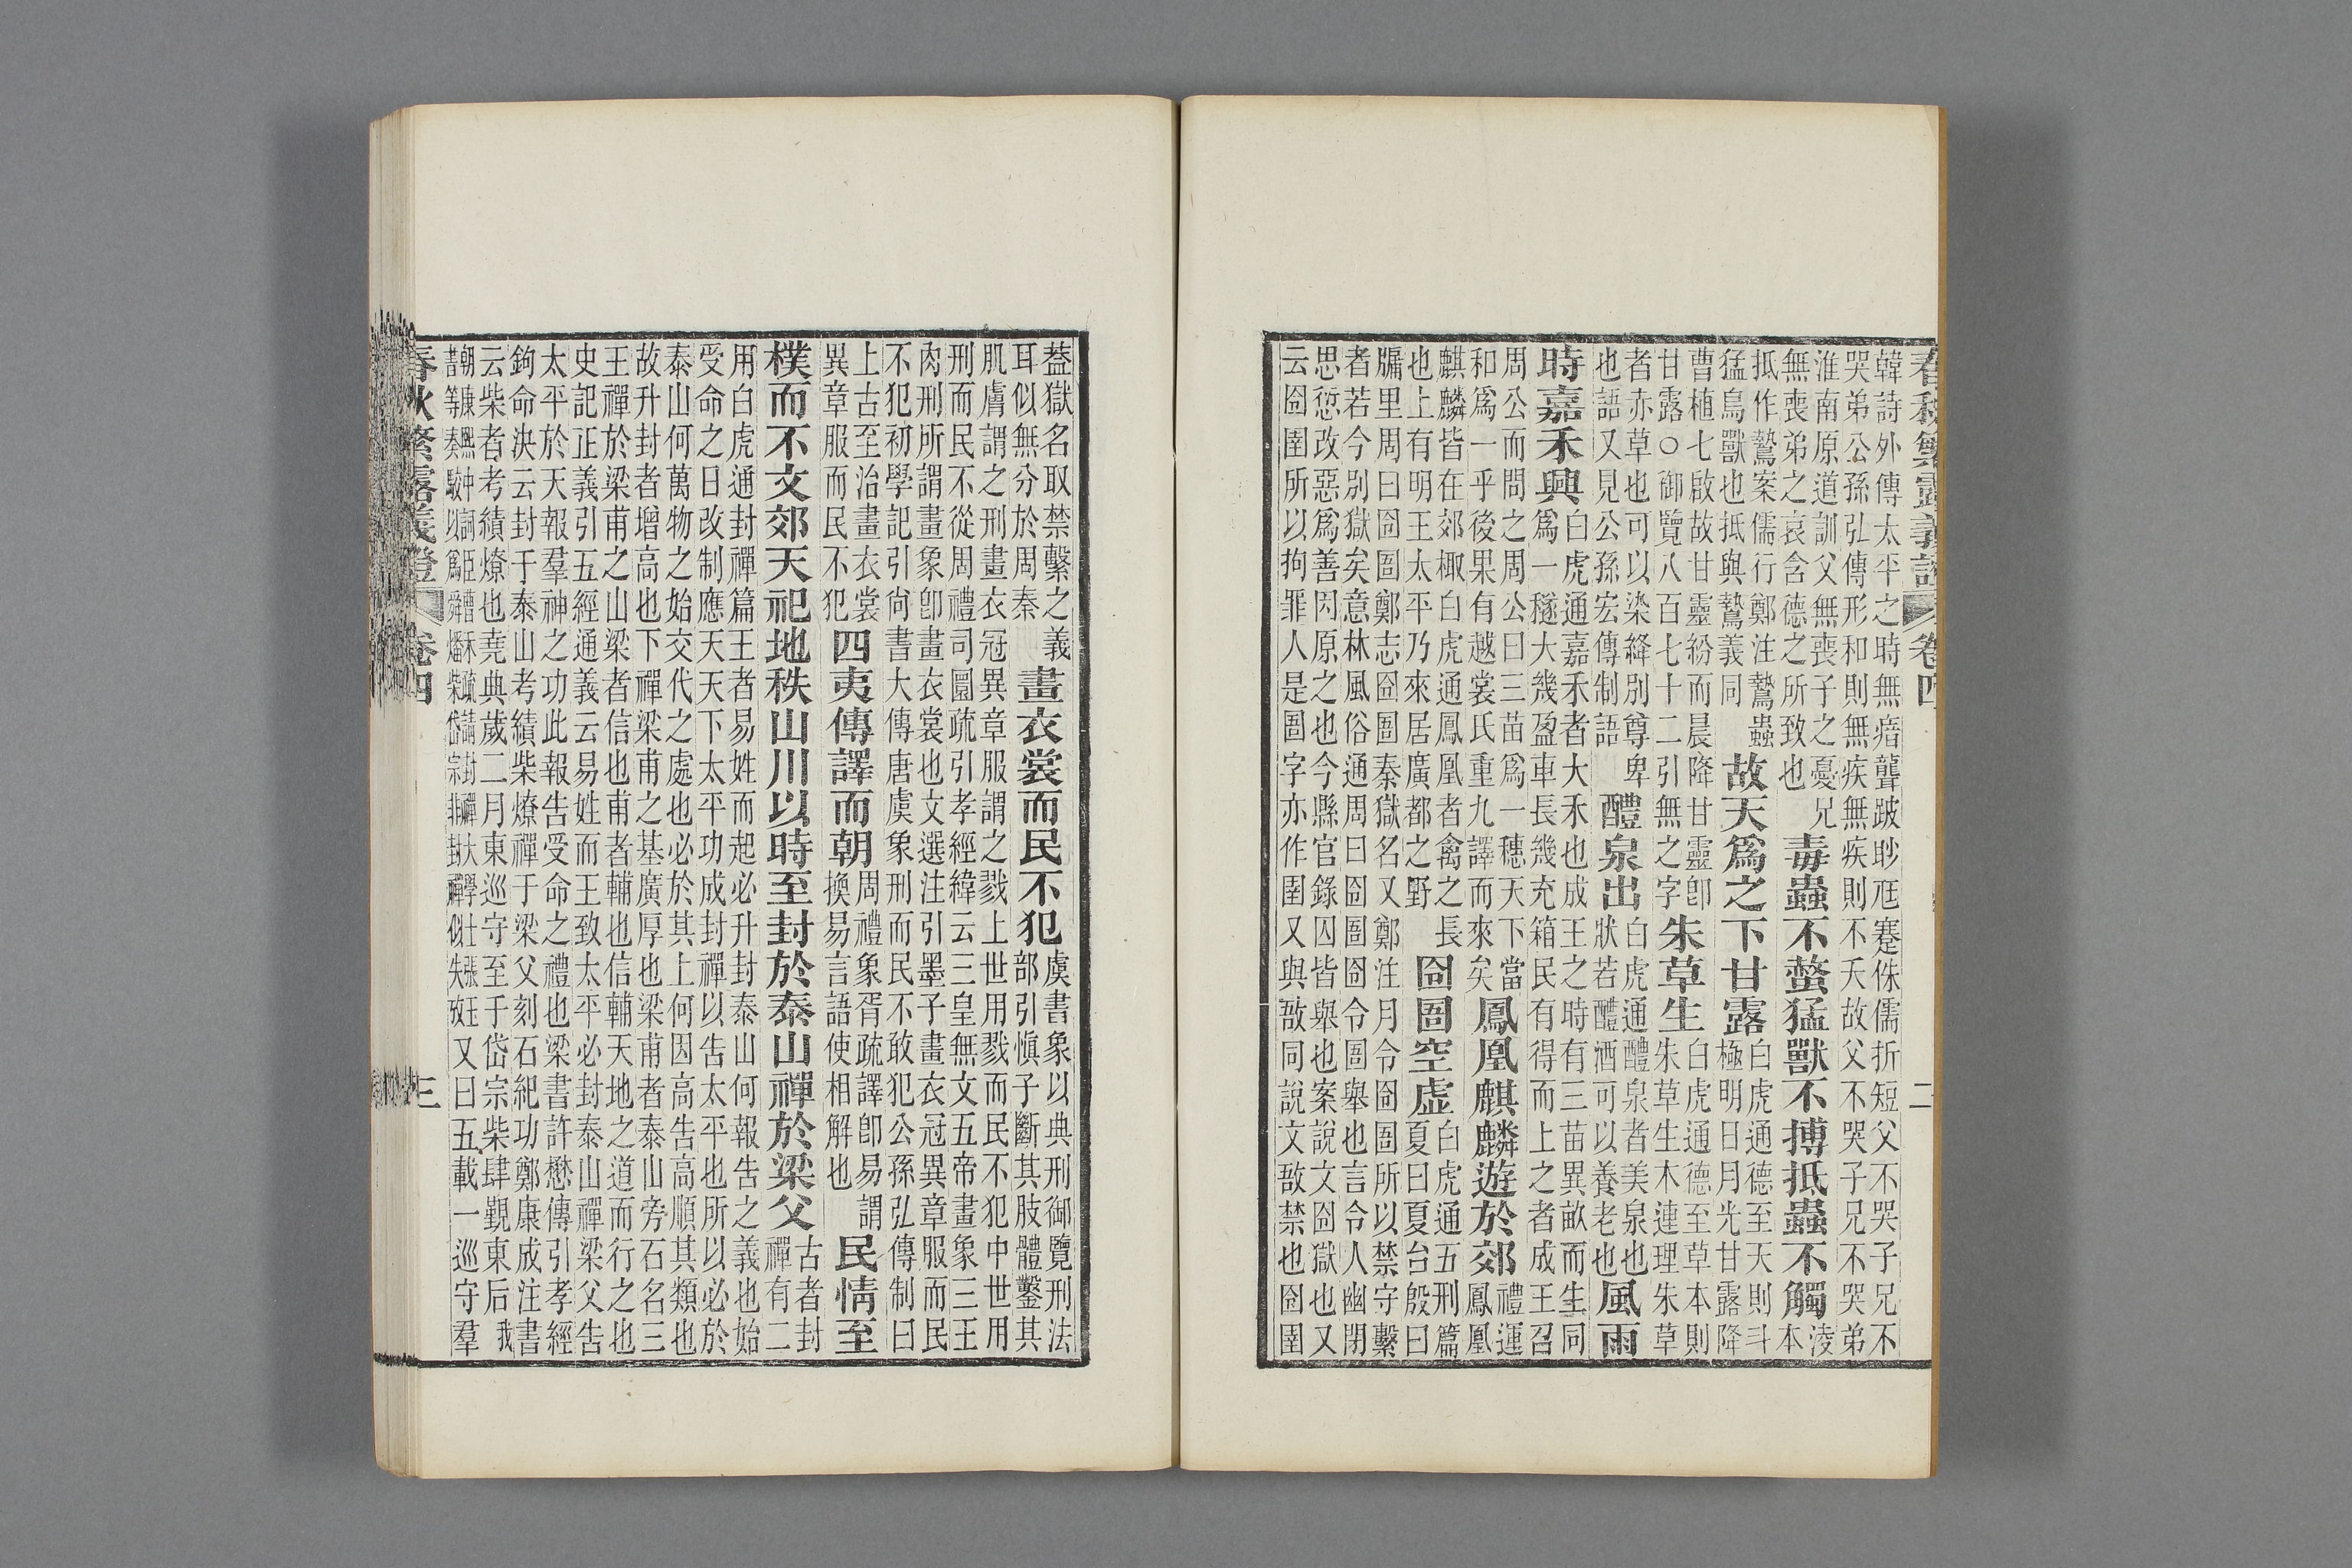 春秋繁露義證 卷四 二
韓詩外傳太平之時無瘖聾跛眇尫蹇侏儒折短父不哭子兄不
哭弟公孫弘傳形和則無疾無疾則不夭故父不哭子兄不哭弟
淮南原道訓父無喪子之憂兄
無喪弟之哀含德之所致也
毒蟲不螫猛獸不搏抵蟲不觸
淩
本
抵作鷙案儒行鄭注鷙蟲
猛鳥獸也抵與鷙義同
故天爲之下甘露
白虎通德至天則斗
極明日月光甘露降
曹植七啟故甘靈紛而晨降甘靈卽
甘露○御覽八百七十二引無之字
朱草生
白虎通德至草本則
朱草生木連理朱草
者赤草也可以染絳別尊卑
也語又見公孫宏傳制語
醴泉出
白虎通醴泉者美泉也
狀若醴酒可以養老也
風雨
時嘉禾興
白虎通嘉禾者大禾也成王之時有三苗異畝而生同
爲一穟大幾盈車長幾充箱民有得而上之者成王召
周公而問之周公曰三苗爲一穗天下當
和爲一乎後果有越裳氏重九譯而來矣
鳳凰麒麟遊於郊
禮運
鳳凰
麒麟皆在郊棷白虎通鳳凰者禽之長
也上有明王太平乃來居廣都之野
囹圄空虛
白虎通五刑篇
夏曰夏台殷曰
牖里周曰囹圄鄭志囹圄秦獄名又鄭注月令囹圄所以禁守繫
者若今別獄矣意林風俗通周曰囹圄囹令圄舉也言令人幽閉
思愆改惡爲善因原之也今縣官錄囚皆舉也案說文囹獄也又
云囹圉所以拘罪人是圄字亦作圉又與敔同說文敔禁也囹圉
葢獄名取禁繫之義
耳似無分於周秦
畫衣裳而民不犯
虞書象以典刑御覽刑法
部引愼子斷其肢體鑿其
肌膚謂之刑畫衣冠異章服謂之戮上世用戮而民不犯中世用
刑而民不從周禮司圜疏引孝經緯云三皇無文五帝畫象三王
肉刑所謂畫象卽畫衣裳也文選注引墨子畫衣冠異章服而民
不犯初學記引尙書大傳唐虞象刑而民不敢犯公孫弘傳制曰
上古至治畫衣裳
異章服而民不犯
四夷傳譯而朝
周禮象胥疏譯卽易謂
換易言語使相解也
民情至
樸而不文郊天祀地秩山川以時至封於泰山禪於梁父
古者封
禪有二
用白虎通封禪篇王者易姓而起必升封泰山何報告之義也始
受命之日改制應天天下太平功成封禪以告太平也所以必於
泰山何萬物之始交代之處也必於其上何因高告高順其類也
故升封者增高也下禪梁甫之基廣厚也梁甫者泰山旁石名三
王禪於梁甫之山梁者信也甫者輔也信輔天地之道而行之也
史記正義引五經通義云易姓而王致太平必封泰山禪梁父告
太平於天報羣神之功此報告受命之禮也梁書許懋傳引孝經
鉤命決云封于泰山考績柴燎禪于梁父刻石紀功鄭康成注書
云柴者考績燎也堯典歲二月東巡守至于岱宗柴肆覲東后我
朝康熙沖詞臣曹禾疏請封禪大學士張玉
書等奏駮以爲舜燔柴岱宗非封禪似失攷
又曰五載一巡守羣
春秋繁露義證 卷四 三